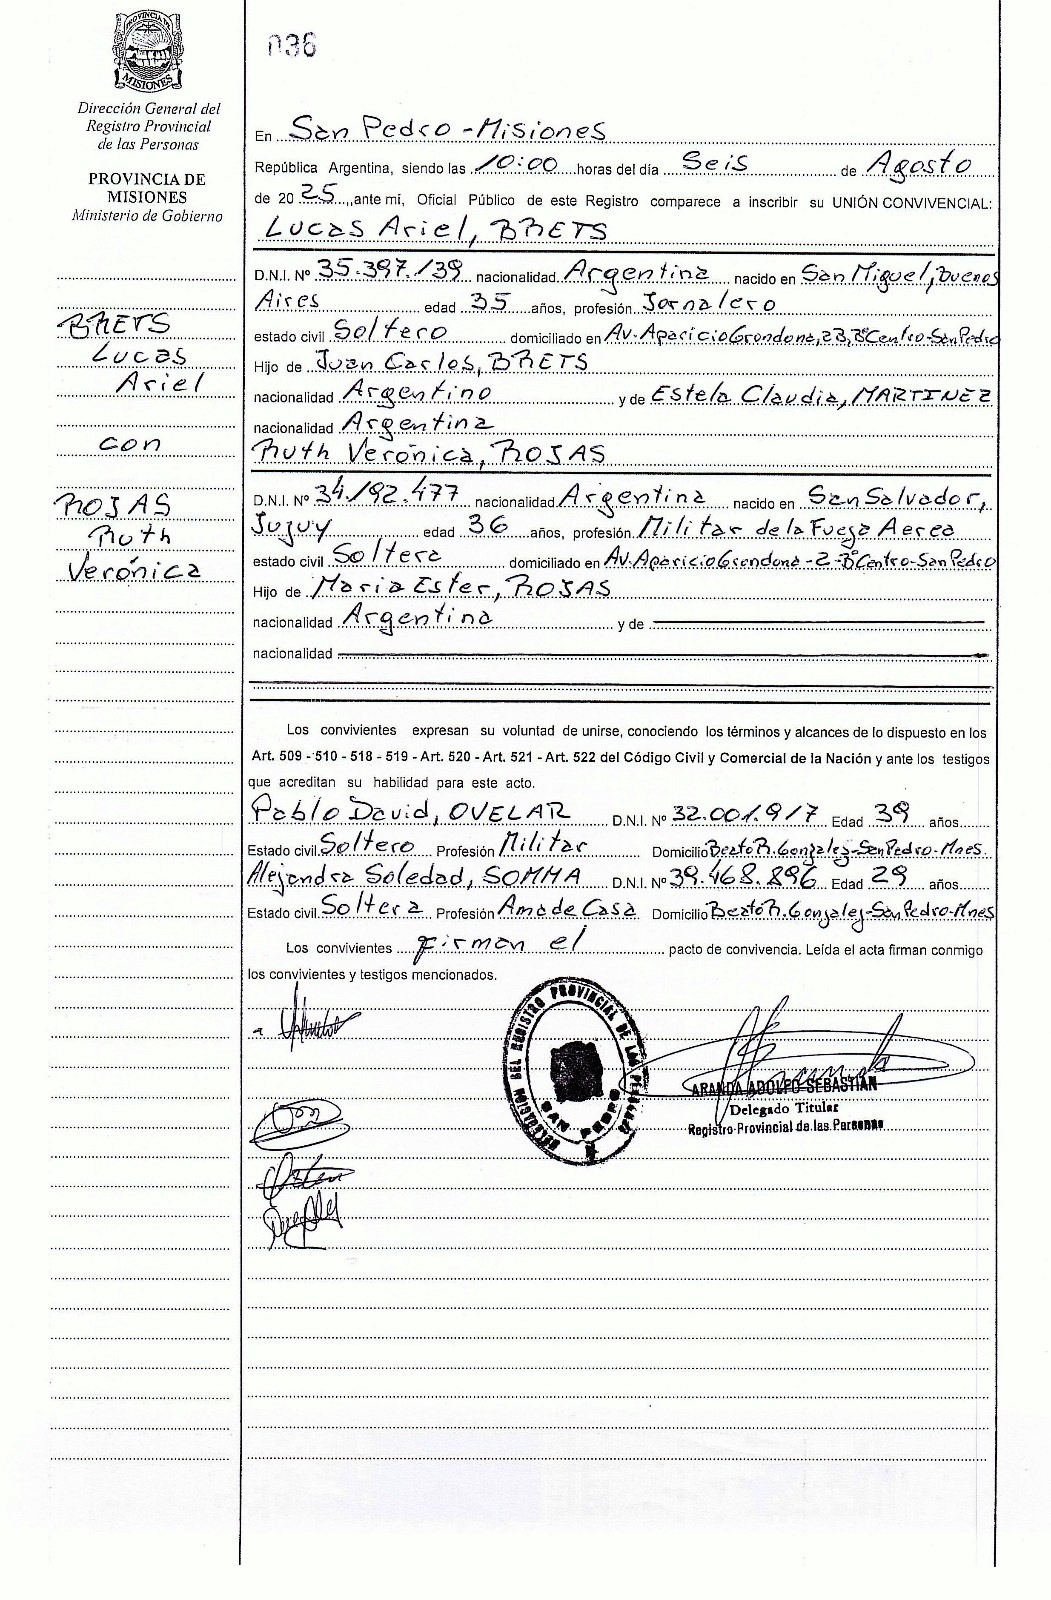 PROVINCIA DE
MISIONES
Dirección General del
Registro Provincial
de las Personas
PROVINCIA DE
MISIONES
Ministerio de Gobierno
BRETS
Lucas
Ariel
con
ROJAS
Ruth
Verónica
036
En San Pedro - Misiones
República Argentina, siendo las 10:00 horas del día Seis de Agosto
de 2025, ante mí, Oficial Público de este Registro comparece a inscribir su UNIÓN CONVIVENCIAL:
Lucas Ariel, BRETS
D.N.I. Nº 35.397.139 nacionalidad Argentina nacido en San Miguel, Buenos
Aires edad 35 años, profesión Jornalero
estado civil Soltero domiciliado en Av. Aparicio Grondona, 23, Bº Centro - San Pedro
Hijo de Juan Carlos, BRETS
nacionalidad Argentino y de Estela Claudia, MARTINEZ
nacionalidad Argentina
Ruth Verónica, ROJAS
D.N.I. Nº 34.192.477 nacionalidad Argentina nacido en San Salvador,
Jujuy edad 36 años, profesión Militar de la Fueza Aerea
estado civil Soltera domiciliado en Av. Aparicio Grondona - 2 - Bº Centro - San Pedro
Hijo de Maria Ester, ROJAS
nacionalidad Argentina y de
nacionalidad
Los convivientes expresan su voluntad de unirse, conociendo los términos y alcances de lo dispuesto en los
Art. 509 - 510 - 518 - 519 - Art. 520 - Art. 521 - Art. 522 del Código Civil y Comercial de la Nación y ante los testigos
que acreditan su habilidad para este acto.
Pablo David, OVELAR D.N.I. Nº 32.001.917 Edad 39 años
Estado civil Soltero Profesión Militar Domicilio Beato R. Gonzalez - San Pedro - Mnes.
Alejandra Soledad, SOMMA D.N.I. Nº 39.468.896 Edad 29 años
Estado civil Soltera Profesión Ama de Casa Domicilio Beato R. Gonzalez - San Pedro - Mnes
Los convivientes firman el pacto de convivencia. Leída el acta firman conmigo
los convivientes y testigos mencionados.
DEL REGISTRO PROVINCIAL DE LAS PERSONAS
SAN PEDRO
ARANDA ADOLFO SEBASTIAN
Delegado Titular
Registro Provincial de las Personas